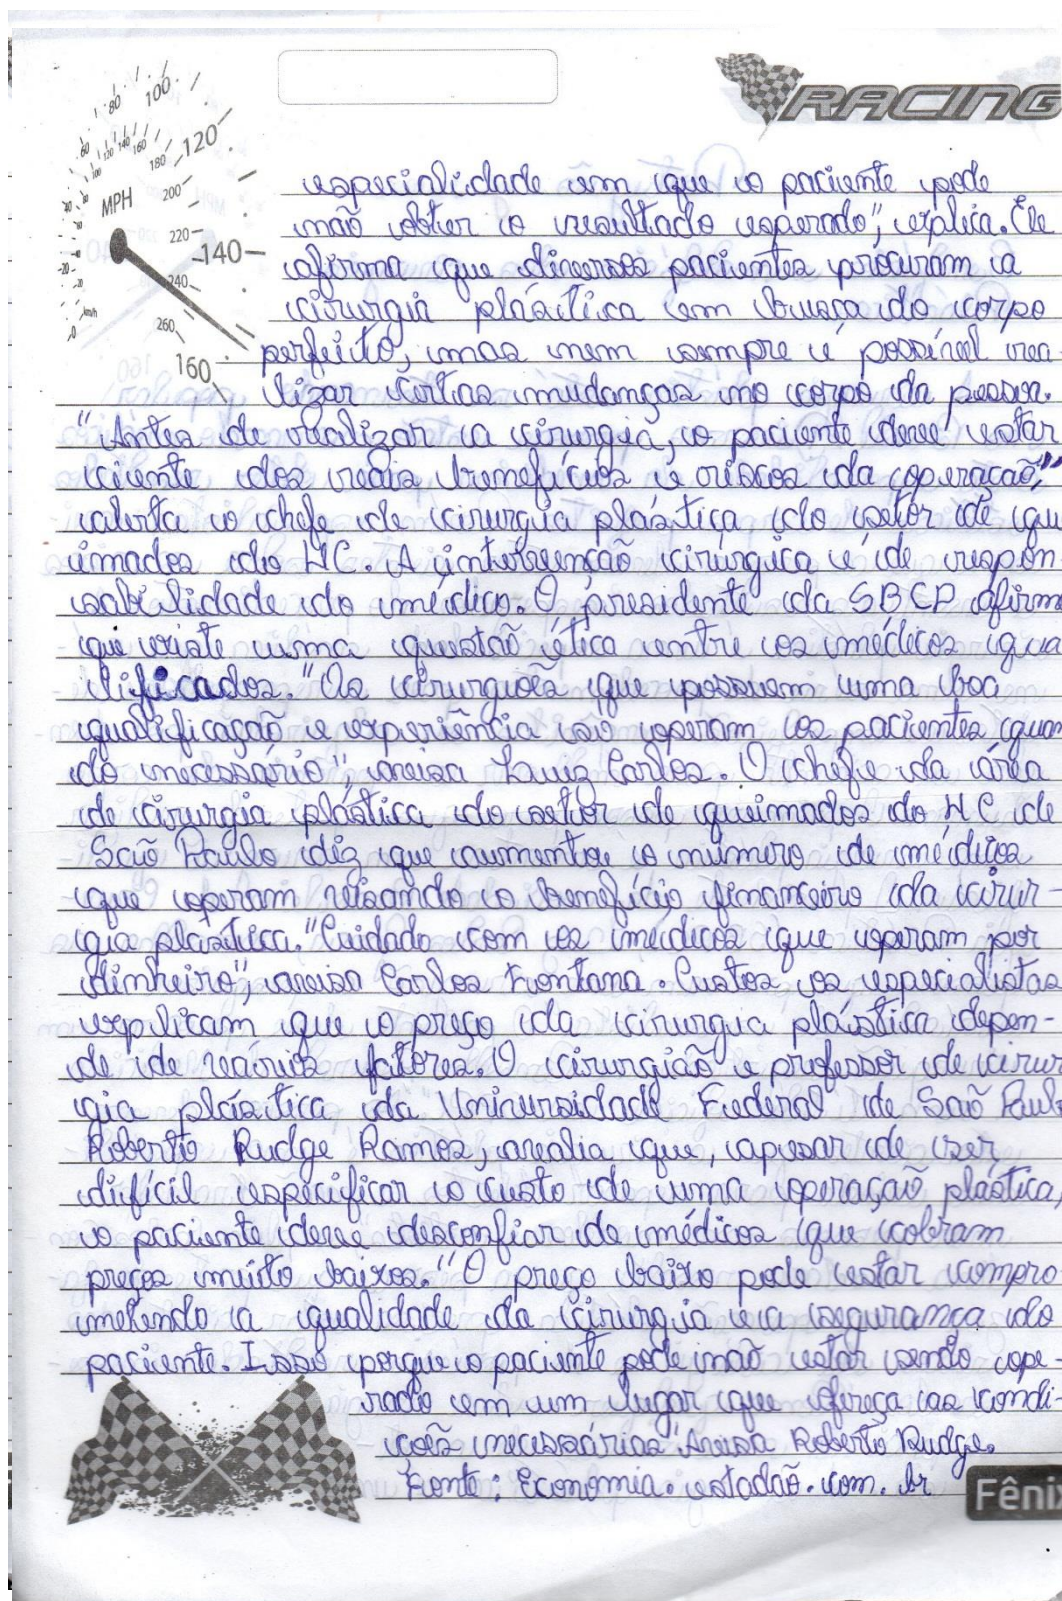 RACING
80 100
60 100 120 140 160 180 120
MPH 200
220 140
240
km/h
260
160
especialidade em que o paciente pode
não obter o resultado esperado", explica. Ele
afirma que diversos pacientes procuram a
cirurgia plástica em busca do corpo
perfeito, mas nem sempre é possível rea-
lizar certas mudanças no corpo da pessoa.
"Antes de realizar a cirurgia, o paciente deve estar
ciente dos reais benefícios e riscos da operação,"
alerta o chefe de cirurgia plástica do setor de que
imados do HC. A intervenção cirúrgica é de respon
sabilidade do médico. O presidente da SBCP afirma
que existe uma questão ética entre os médicos qua
lificados. "Os cirurgiões que possuem uma boa
qualificação e experiência só operam os pacientes quan
do necessário", avisa Luiz Carlos. O chefe da área
de cirurgia plástica do setor de queimados do HC de
São Paulo diz que aumentou o número de médicos
que operam visando o benefício financeiro da cirur-
gia plástica. "Cuidado com os médicos que operam por
dinheiro", avisa Carlos Fontana. Custos os especialistas
explicam que o preço da cirurgia plástica depen-
de de vários fatores. O cirurgião e professor de cirur
gia plástica da Universidade Federal de São Paulo
Roberto Rudge Ramos, avalia que, apesar de ser
difícil especificar o custo de uma operação plástica,
o paciente deve desconfiar de médicos que cobram
preços muito baixos. "O preço baixo pode estar compro
metendo a qualidade da cirurgia e a segurança do
paciente. Isso porque o paciente pode não estar sendo ope-
rado em um lugar que ofereça as condi-
ções necessárias" Avisa Roberto Rudge.
Fonte: Economia. estadão. com. br
Fênix